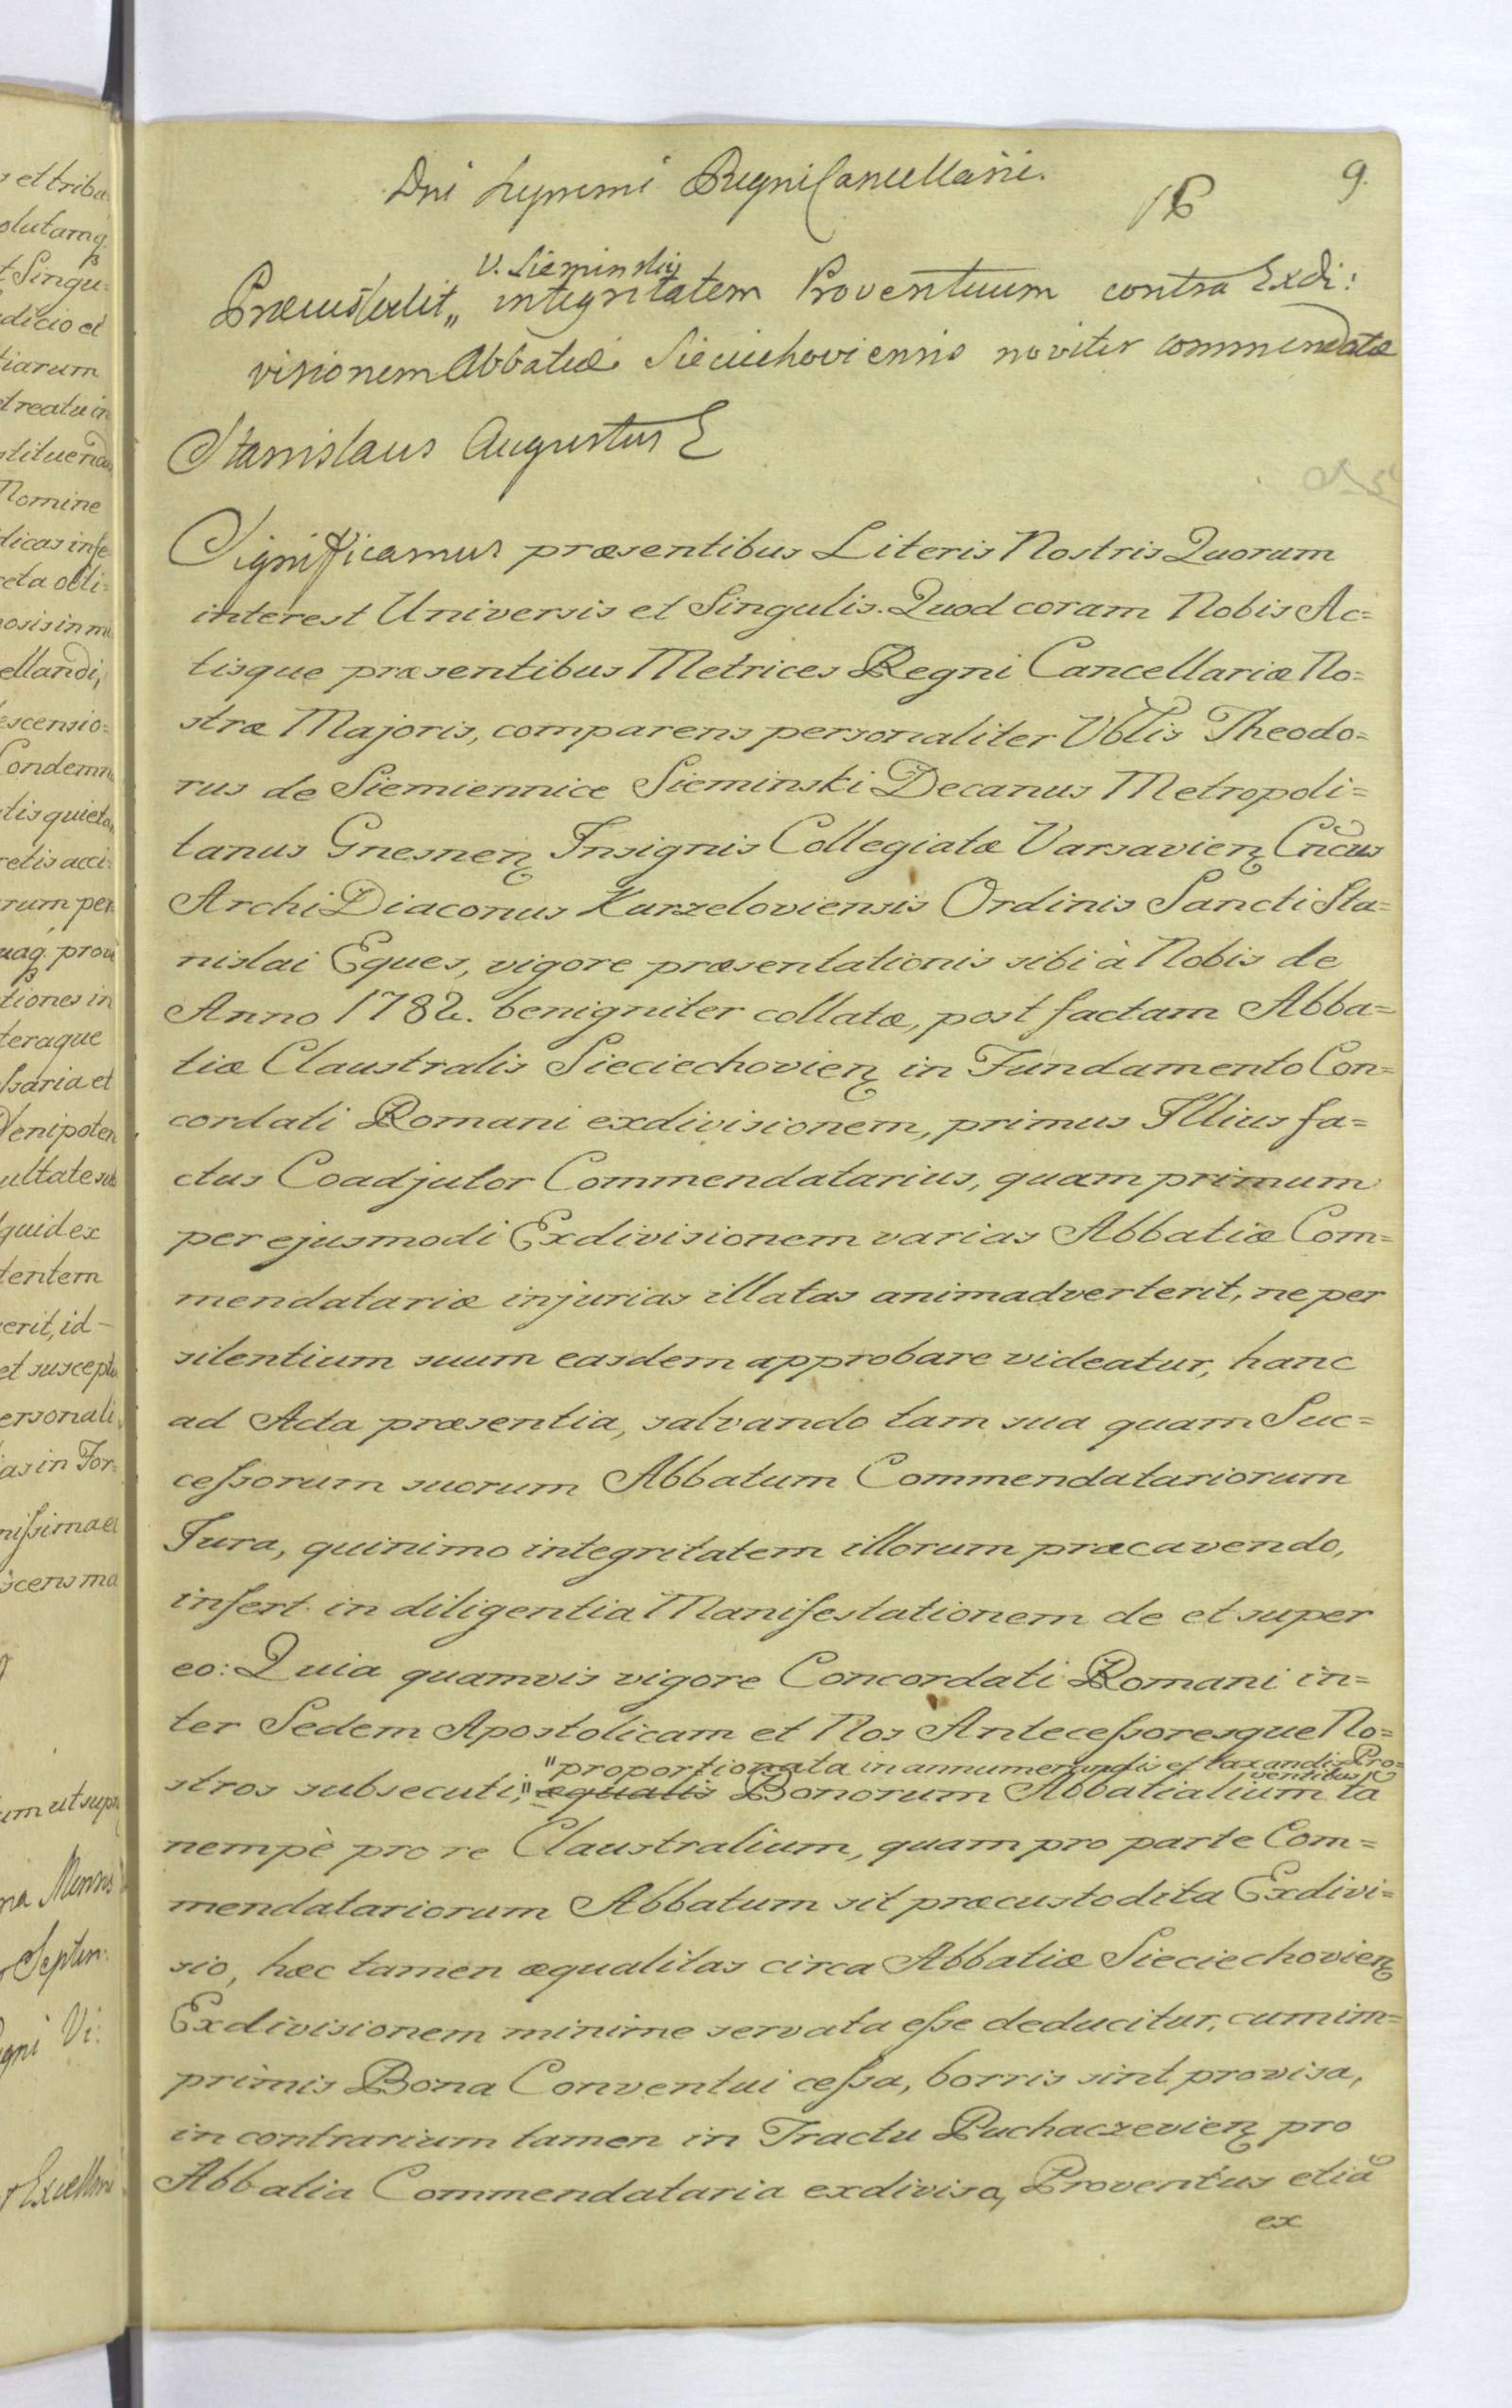 Dni Supremi Regni Cancellarii.
16
9.
V. Sieminskij
Præcustodit „ integritatem Proventuum contra Exdi:
visionem Abbatiæ Sieciechoviensis noviter commendatæ
Stanislaus Augustus
Significamus præsentibus Literis Nostris Quorum
interest Universis et Singulis. Quod coram Nobis Ac=
tisque præsentibus Metrices Regni Cancellariæ No=
stræ Majoris, comparens personaliter Vblis Theodo=
rus de Siemiennice Sieminski Decanus Metropoli=
tanus Gnesnen Insignis Collegiatæ Varsavien Cñcus
ArchiDiaconus Kurzeloviensis Ordinis Sancti Sta=
nislai Eques, vigore præsentationis sibi à Nobis de
Anno 1782. benigniter collatæ, post factam Abba=
tiæ Claustralis Sieciechovien in Fundamento Con=
cordati Romani exdivisionem, primus Illius fa=
ctus Coadjutor Commendatarius, quam primum
per ejusmodi Exdivisionem varias Abbatiæ Com=
mendatariæ injurias illatas animadverterit, ne per
silentium suum easdem approbare videatur, hanc
ad Acta præsentia, salvando tam sua quam Suc=
cessorum suorum Abbatum Commendatariorum
Jura, quinimo integritatem illorum præcavendo,
infert in diligentia Manifestationem de et super
eo: Quia quamvis vigore Concordati Romani in=
ter Sedem Apostolicam et Nos Antecessoresque No=
"proportionata in annumerandis et taxandis Pro=
ventibus
stros subsecuti," æqualis Bonorum Abbatialium ta
nempè pro re Claustralium, quam pro parte Com=
mendatariorum Abbatum sit præcustodita Exdivi=
sio, hæc tamen æqualitas circa Abbatiæ Sieciechovien
Exdivisionem minime servata esse deducitur, cum im=
primis Bona Conventui cessa, borris sint provisa,
in contrarium tamen in Tractu Puchaczevien pro
Abbatia Commendataria exdiviso, Proventus etiã
ex